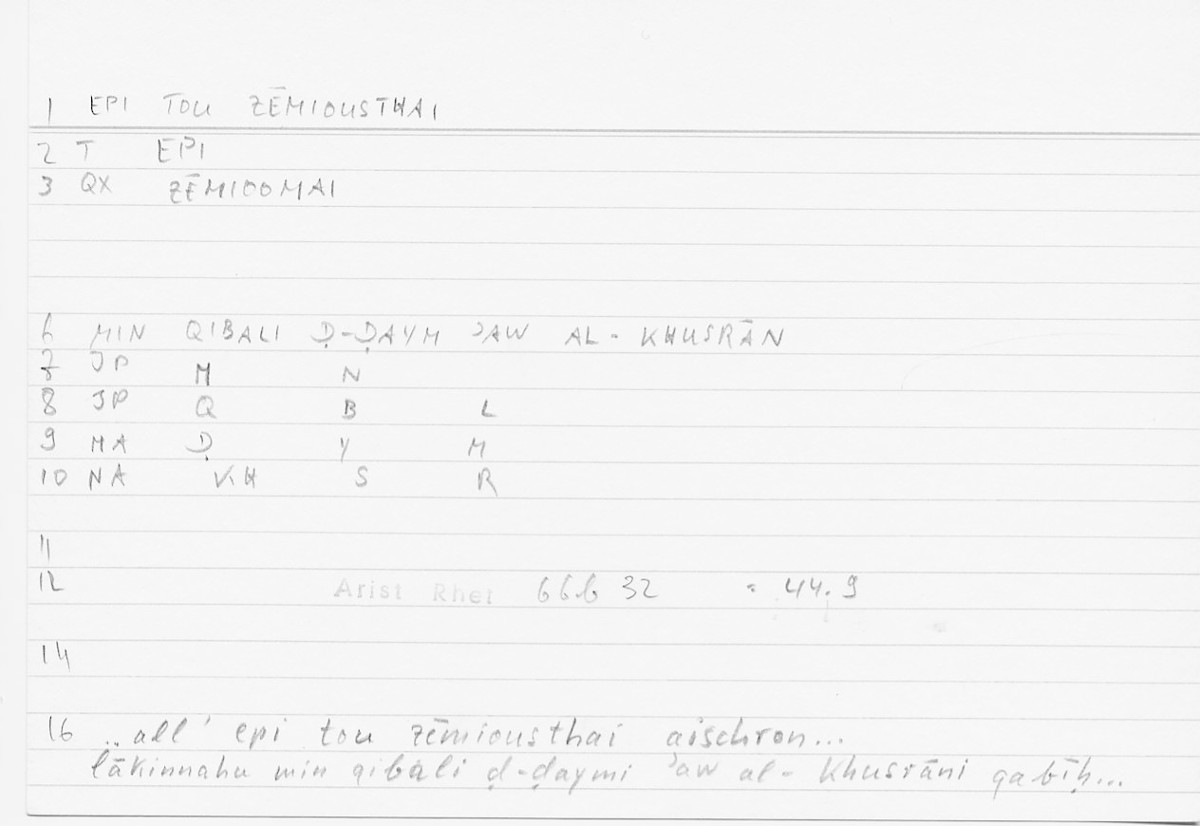 1 EPI TOU ZĒMIOUSTHAI
2 T EPI
3 QX ZĒMIOOMAI
6 MIN QIBALI Ḍ-ḌAYM ʾAW AL-KHUSRĀN
7 JP M N
8 JP Q B L
9 MA Ḍ Y M
10 NA KH S R
11
12 Arist Rhet 66b 32 = 44.9
14
16 ..all' epi tou zēmiousthai aischron...
lākinnahu min qibali ḍ-ḍaymi ʾaw al-Khusrāni qabīḥ...